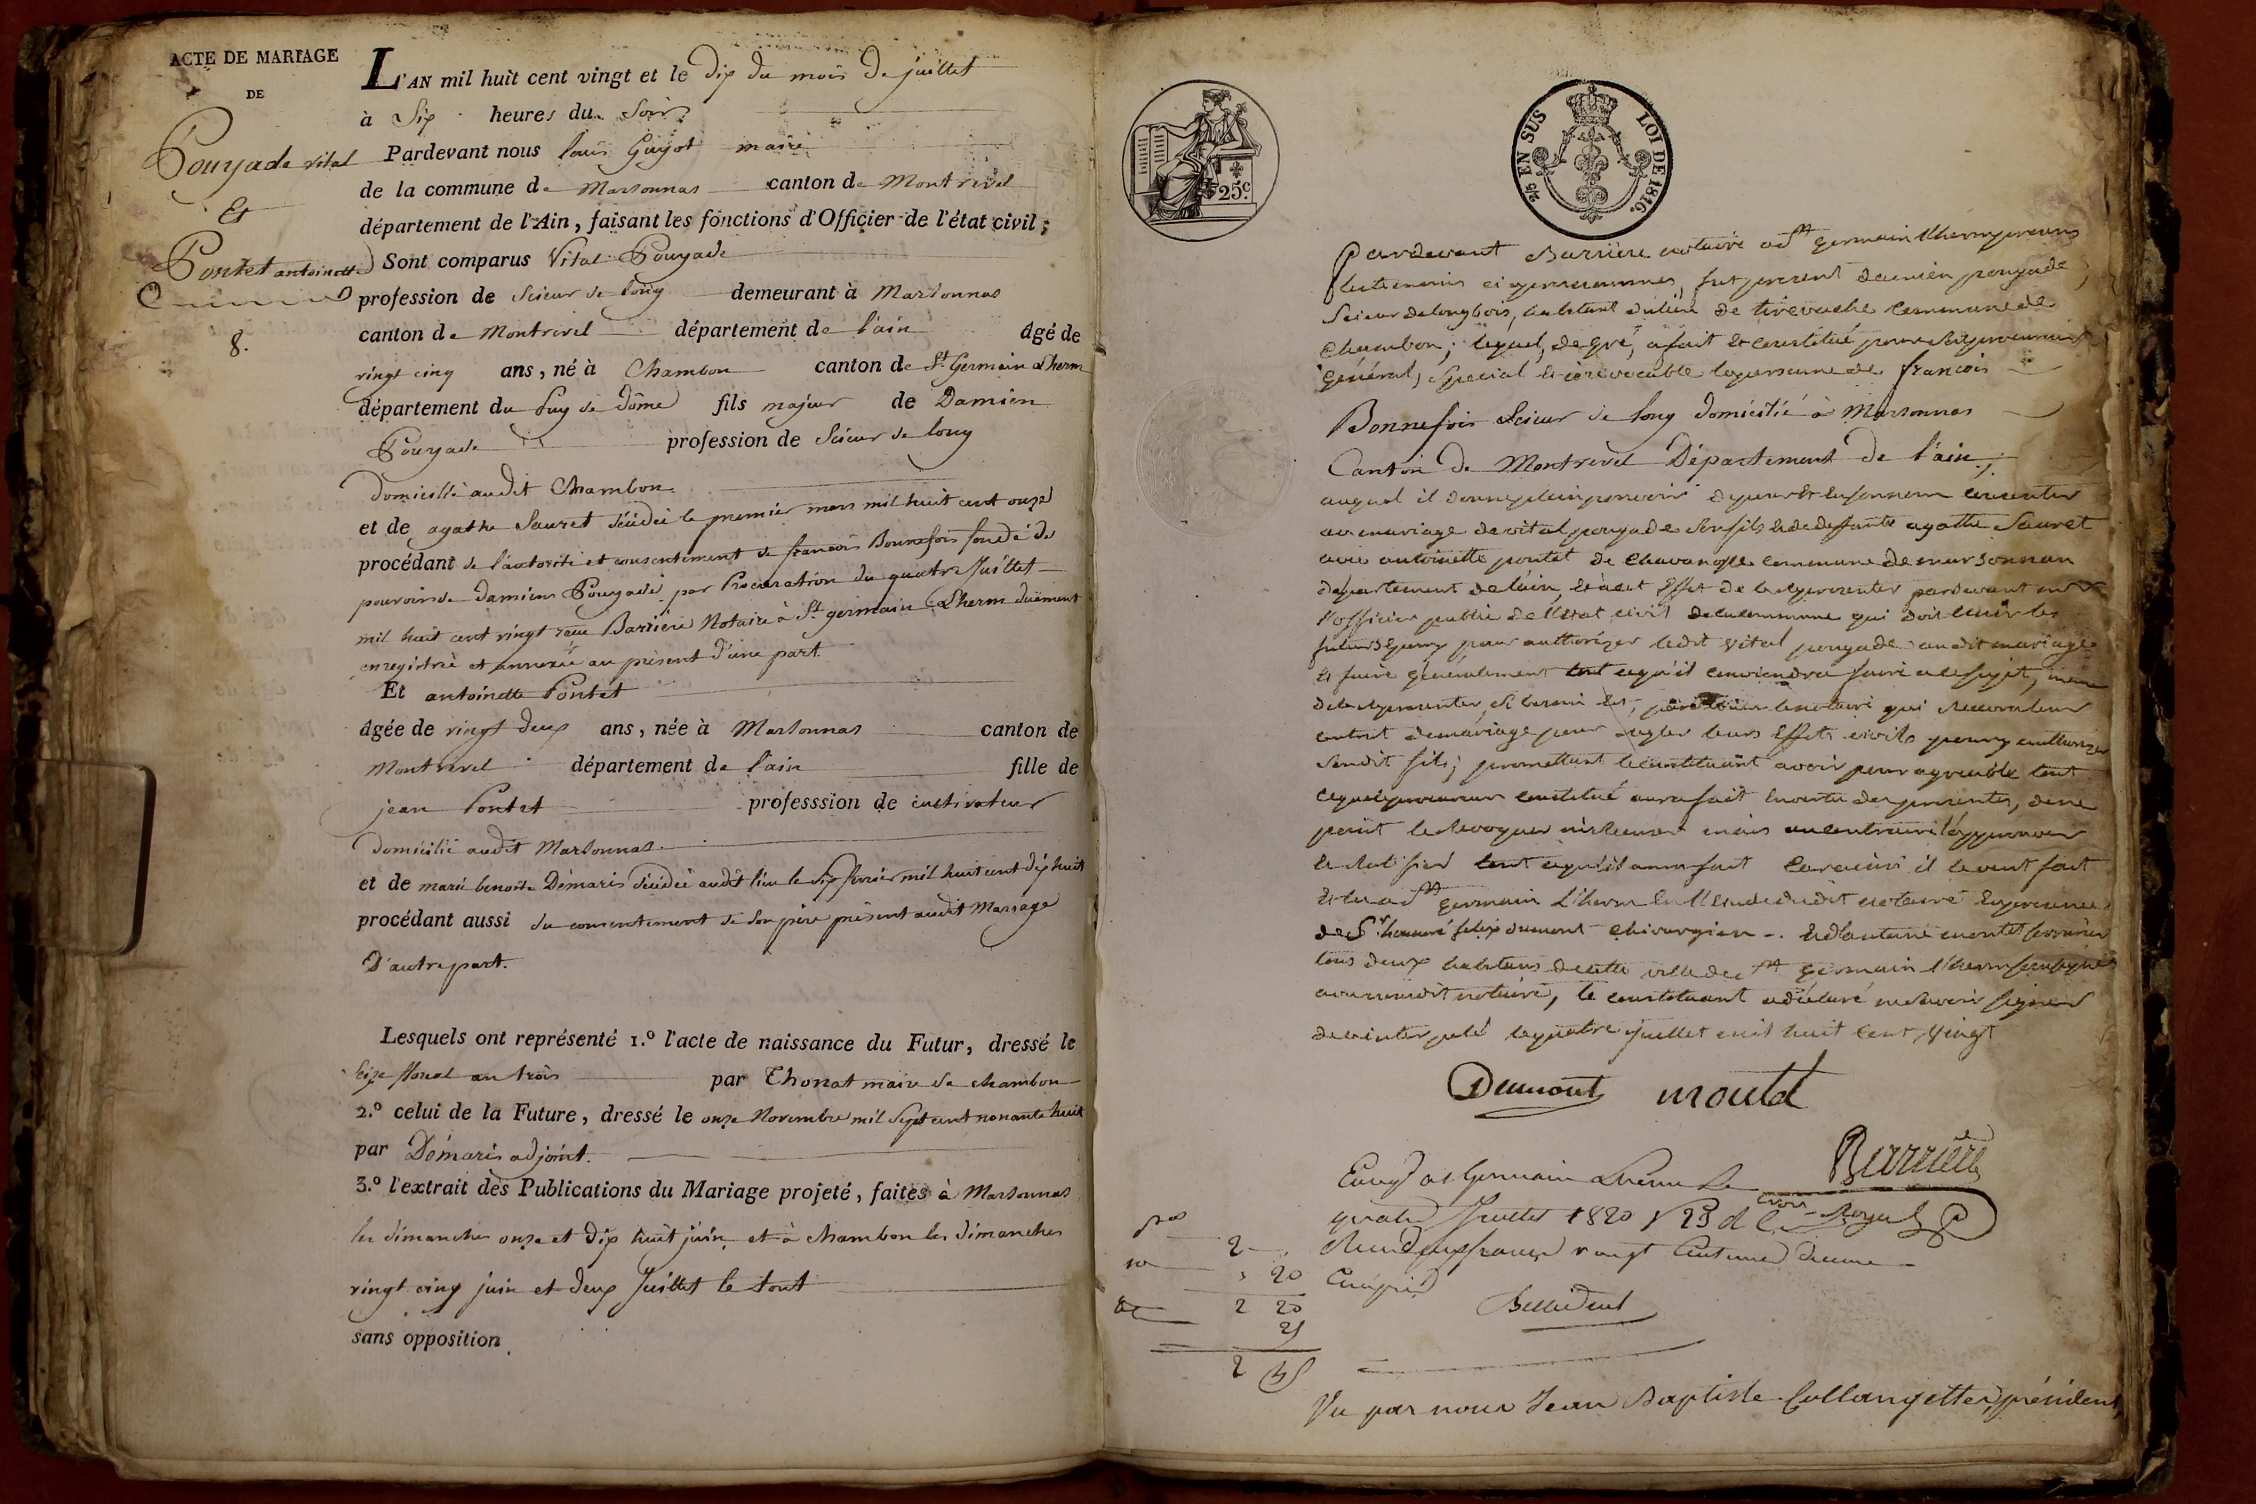 ACTE DE MARIAGE
DE
Pouyade vital
Et
Pontet antoinette
8.
L'AN mil huit cent vingt et le dix du mois de juillet
à Six heures du Soir
Pardevant nous louis Guyot maire
de la commune de Marsonnas canton de Montrevel
département de l'Ain, faisant les fonctions d'Officier de l'état civil;
Sont comparus Vital Pouyade
profession de Scieur de long demeurant à Marsonnas
canton de Montrevel département de l'ain âgé de
vingt cinq ans, né à Chambon canton de St Germain Lherm
département du Puy de dôme fils majeur de Damien
Pouyade profession de Scieur de long
domicillé audit Chambon
et de agathe Sauret décédée le premier mars mil huit cent onze
procédant de l'autorité et consentement de francois Bonnefois fondé de
pouvoirs de Damien Pouyade par Procuration du quatre Juillet
mil huit cent vingt reçue Barrière Notaire à St germain Lherm duement
enregistrée et annexée au présent d'une part
Et antoinette Pontet
âgée de vingt deux ans, née à Marsonnas canton de
Montrevel département de l'ain fille de
jean Pontet professsion de cultivateur
domicilié audit Marsonnas
et de marie benoite Démaris décédée audit lieu le six février mil huit cent dix huit
procédant aussi du consentement de son père présent audit Mariage
D'autre part.
Lesquels ont représenté 1.º l'acte de naissance du Futur, dressé le
Seize floreal an trois par Thonat maire de chambon
2.º celui de la Future, dressé le onze Novembre mil Sept cent nonante huit
par Démaris adjoint.
3.º l'extrait des Publications du Mariage projeté, faites à Marsonnas
les dimanches onze et dix huit juin et à chambon les dimanches
vingt cinq juin et deux Juillet le tout
sans opposition.
25c.
2/5 EN SUS LOI DE 1816.
Pardevant Barriere notaire a St germain lherm
fut present damien pouyade,
Scieur de long bois, habitant du lieu de commune de
Chambon; lequel, de gré, a fait et constitué pour son procureur
général, Special et irrevocable la personne de francois
Bonnefois Scieur de long domicilié à Marsonnas
Canton de Montrevel Département de l'ain,
auquel il donne plein pouvoir de pour et en son nom consentir
au mariage de vital pouyade son fils et de deffunte agathe Sauret
avec antoinette pontet de Chavanosse commune de marsonnan
département de l'ain, et a cet Effet de le representer pardevant
l'officier public de l'Etat civil de la commune qui doit unir les
futurs Epoux pour authorizer ledit vital pouyade audit mariage
et faire généralement tout ce qu'il conviendra faire a ce sujet, meme
de le representer, si besoin est, notaire qui recevra leur
contrat de mariage pour regler leurs Effets civils pour y authorizer
sondit fils; promettant le constituant avoir pour agreable tout
ce que le procureur constitué aura fait en vertu des presentes, de ne
point le revoquer mais au contraire l'approuver
et Ratifier tout ce qu'il aura fait Car ainsi il le veut fait
Et lu a St germain L'herm En l'Etude dudit notaire En presence
de Sr. honnoré felix dumont chirurgien Et d'antoine moulet serrurier
tous deux habitans de cette ville de St germain l'herm soussignés
avec nousdit notaire, le constituant a déclaré ne savoir signer
de ce interpelé le quatre juillet mil huit Cent Vingt
Dumont moulet
Barriere
Enregé a St Germain Lherm Le
quatre Juillet 1820
Recu deux francs vingt Centimes dixieme
Compris
2
20
2 20
25
2 45
Vu par nous Jean Baptiste Collangettes, président,